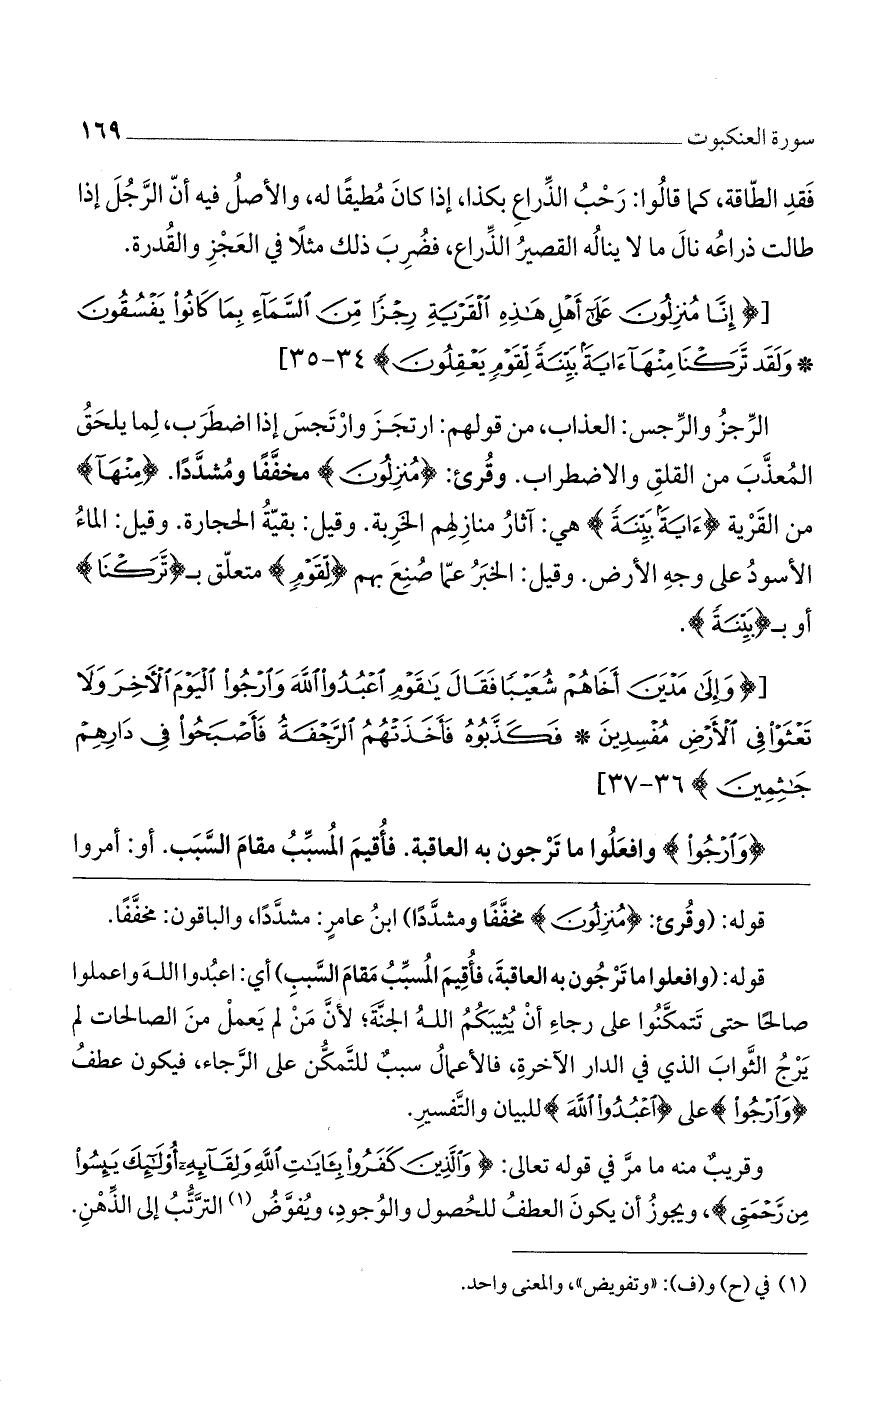 سورة العنكبوت ١٦٩
فَقدِ الطّاقة، كما قالُوا: رَحْبُ الذِّراعِ بكذا، إذا كانَ مُطيقًا له، والأصلُ فيه أنّ الرَّجُلَ إذا
طالت ذراعُه نالَ ما لا ينالُه القصيرُ الذِّراع، فضُرِبَ ذلك مثلًا في العَجْزِ والقُدرة.
[﴿إِنَّا مُنزِلُونَ عَلَىٰٓ أَهْلِ هَٰذِهِ ٱلْقَرْيَةِ رِجْزًا مِّنَ ٱلسَّمَآءِ بِمَا كَانُوا۟ يَفْسُقُونَ
* وَلَقَد تَّرَكْنَا مِنْهَآ ءَايَةًۢ بَيِّنَةً لِّقَوْمٍ يَعْقِلُونَ﴾ ٣٤-٣٥]
الرِّجزُ والرِّجس: العذاب، من قولهم: ارتجَـزَ وارْتجسَ إذا اضطَرَب، لِما يلحَقُ
المُعذَّبَ من القلقِ والاضطراب. وقُرئ: ﴿مُنزِلُونَ﴾ مخفَّفًا ومُشدَّدًا. ﴿مِنْهَآ﴾
من القَرْية ﴿ءَايَةًۢ بَيِّنَةً﴾ هي: آثارُ منازلِهم الخَرِبة. وقيل: بقيّةُ الحجارة. وقيل: الماءُ
الأسودُ على وجهِ الأرض. وقيل: الخبَرُ عمّا صُنِعَ بهم ﴿لِّقَوْمٍ﴾ متعلّق بـ﴿تَّرَكْنَا﴾
أو بـ﴿بَيِّنَةً﴾.
[﴿وَإِلَىٰ مَدْيَنَ أَخَاهُمْ شُعَيْبًا فَقَالَ يَٰقَوْمِ ٱعْبُدُوا۟ ٱللَّهَ وَٱرْجُوا۟ ٱلْيَوْمَ ٱلْءَاخِرَ وَلَا
تَعْثَوْا۟ فِى ٱلْأَرْضِ مُفْسِدِينَ * فَكَذَّبُوهُ فَأَخَذَتْهُمُ ٱلرَّجْفَةُ فَأَصْبَحُوا۟ فِى دَارِهِمْ
جَٰثِمِينَ﴾ ٣٦-٣٧]
﴿وَٱرْجُوا۟﴾ وافعَلُوا ما تَرْجون به العاقبة. فأُقيمَ المُسبِّبُ مقامَ السَّبَب. أو: أمروا
قوله: (وقُرئ: ﴿مُنزِلُونَ﴾ مخفَّفًا ومشدَّدًا) ابنُ عامرٍ: مشدَّدًا، والباقون: مخفَّفًا.
قوله: (وافعلوا ما تَرْجُون به العاقبةَ، فأُقِيمَ المُسبِّبُ مَقامَ السَّببِ) أي: اعبُدوا اللـهَ واعملوا
صالحًا حتى تَتمكَّنُوا على رجاءِ أنْ يُثِيبَكُمُ اللـهُ الجنَّةَ؛ لأنَّ مَنْ لم يَعملْ منَ الصالحات لم
يَرْجُ الثَّوابَ الذي في الدار الآخرةِ، فالأعمالُ سببٌ للتَّمكُّن على الرَّجاء، فيكون عطفُ
﴿وَٱرْجُوا۟﴾ على ﴿ٱعْبُدُوا۟ ٱللَّهَ﴾ للبيان والتَّفسيرِ.
وقريبٌ منه ما مرَّ في قوله تعالى: ﴿وَٱلَّذِينَ كَفَرُوا۟ بِـَٔايَٰتِ ٱللَّهِ وَلِقَآئِهِۦٓ أُو۟لَٰٓئِكَ يَئِسُوا۟
مِن رَّحْمَتِى﴾، ويجوزُ أن يكونَ العطفُ للحُصول والوُجودِ، ويُفوَّضُ(١) التَّرتُّبُ إلى الذِّهْنِ.
(١) في (ح) و(ف): «وتفويض»، والمعنى واحد.